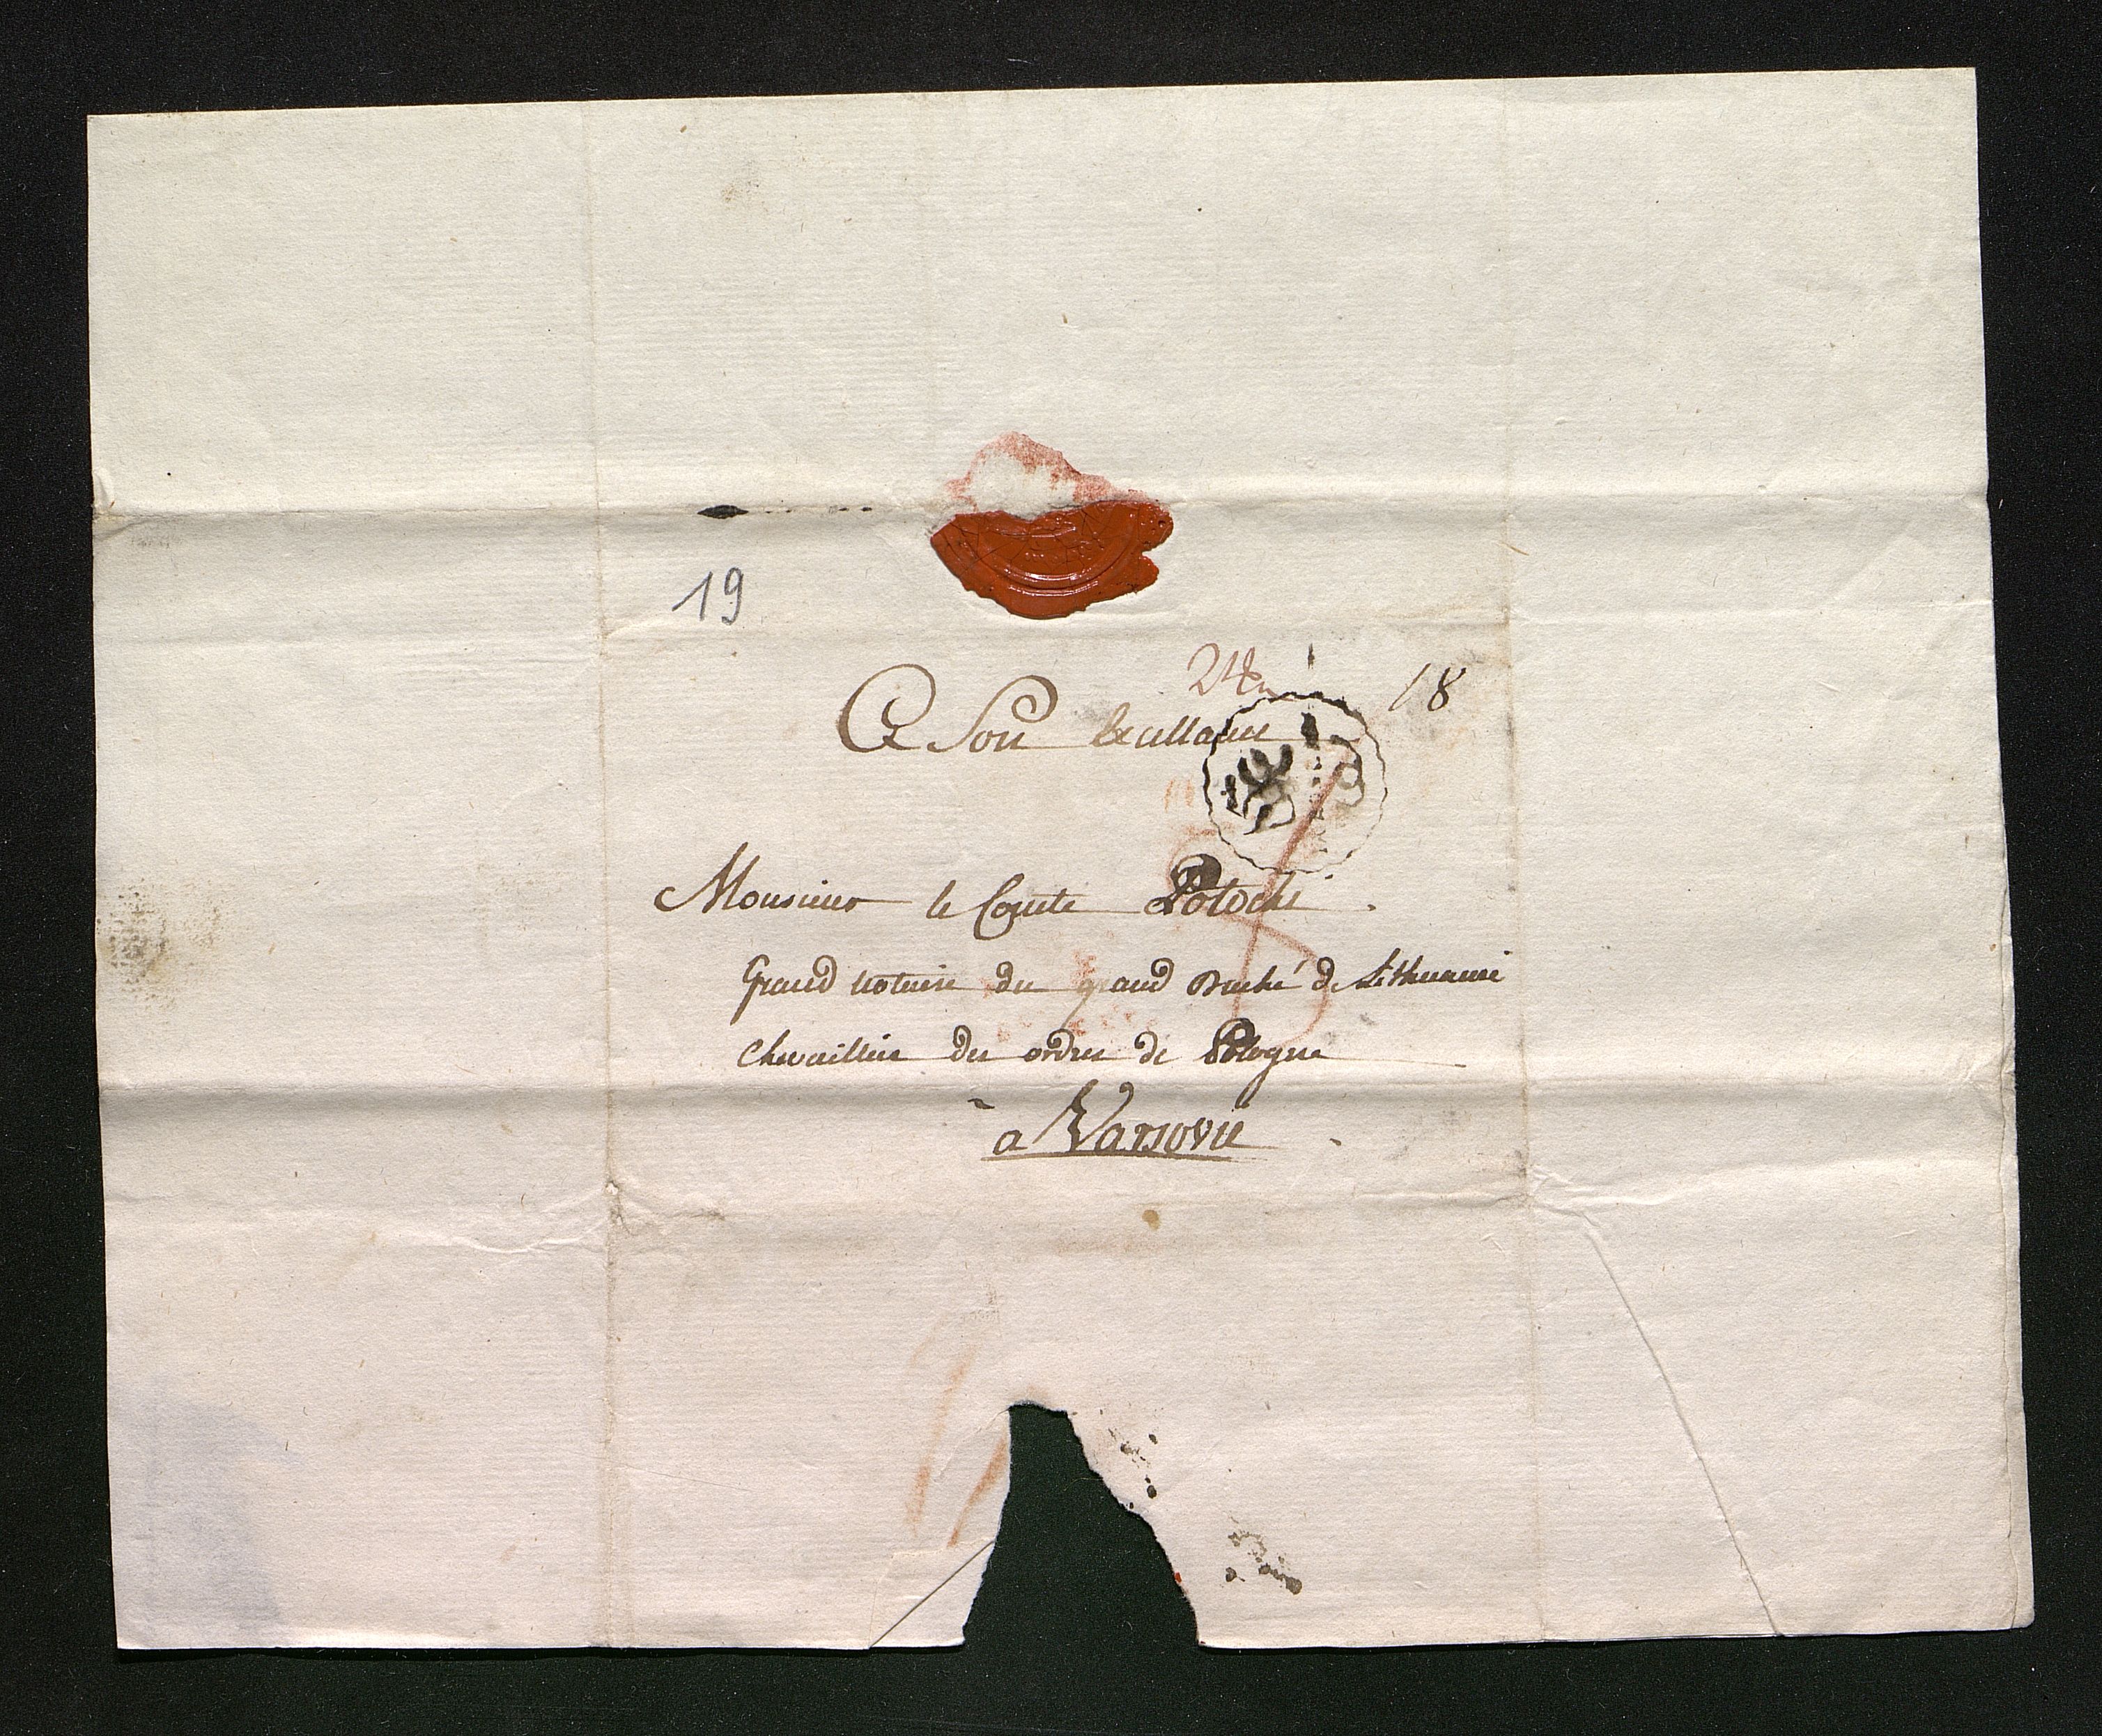 19
24
18
A Son Excellance
Monsieur le Comte Potocki
Grand notaire du grand Duché de Lithuanie
Chevaillier des ordres de Pologne
à Varsovie